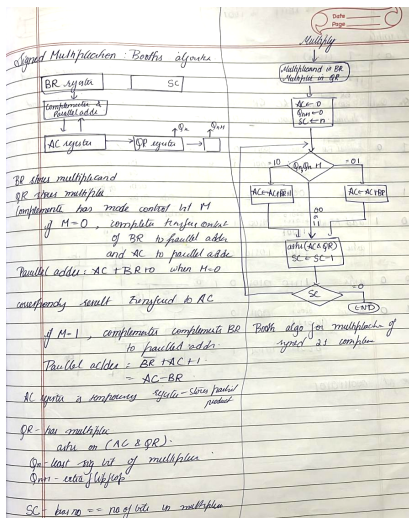 Date
Page
Multiply
Signed Multiplication : Booths algorithm
BR register
SC
Complementer &
Parallel adder
AC register
QR register
Qn
Qn+1
BR stores multiplicand
QR stores multiplier
Complementer has mode control bit M
if M=0, complementer transfers content
of BR to parallel adder
and AC to parallel adder
Parallel adder: AC + BR+0 when M=0
correspondingly result transferred to AC
if M=1, complementer complements BR
to parallel adder.
Parallel adder = BR + AC + 1
= AC-BR
AC register is temporary register - stores partial
product
QR - has multiplier
ashr on (AC & QR).
Qn - least sig bit of multiplier
Qn+1 - extra flipflop
SC - has no == no of bits in multiplier
Multiplicand in BR
Multiplier in QR
AC ← 0
Qn+1 ← 0
SC ← n
=10
Qn Qn+1
=01
AC←AC+BR+1
AC←AC+BR
00
11
ashr (AC & QR)
SC ← SC-1
SC
=0
END
Booth algo for multiplication of
signed 2s complement